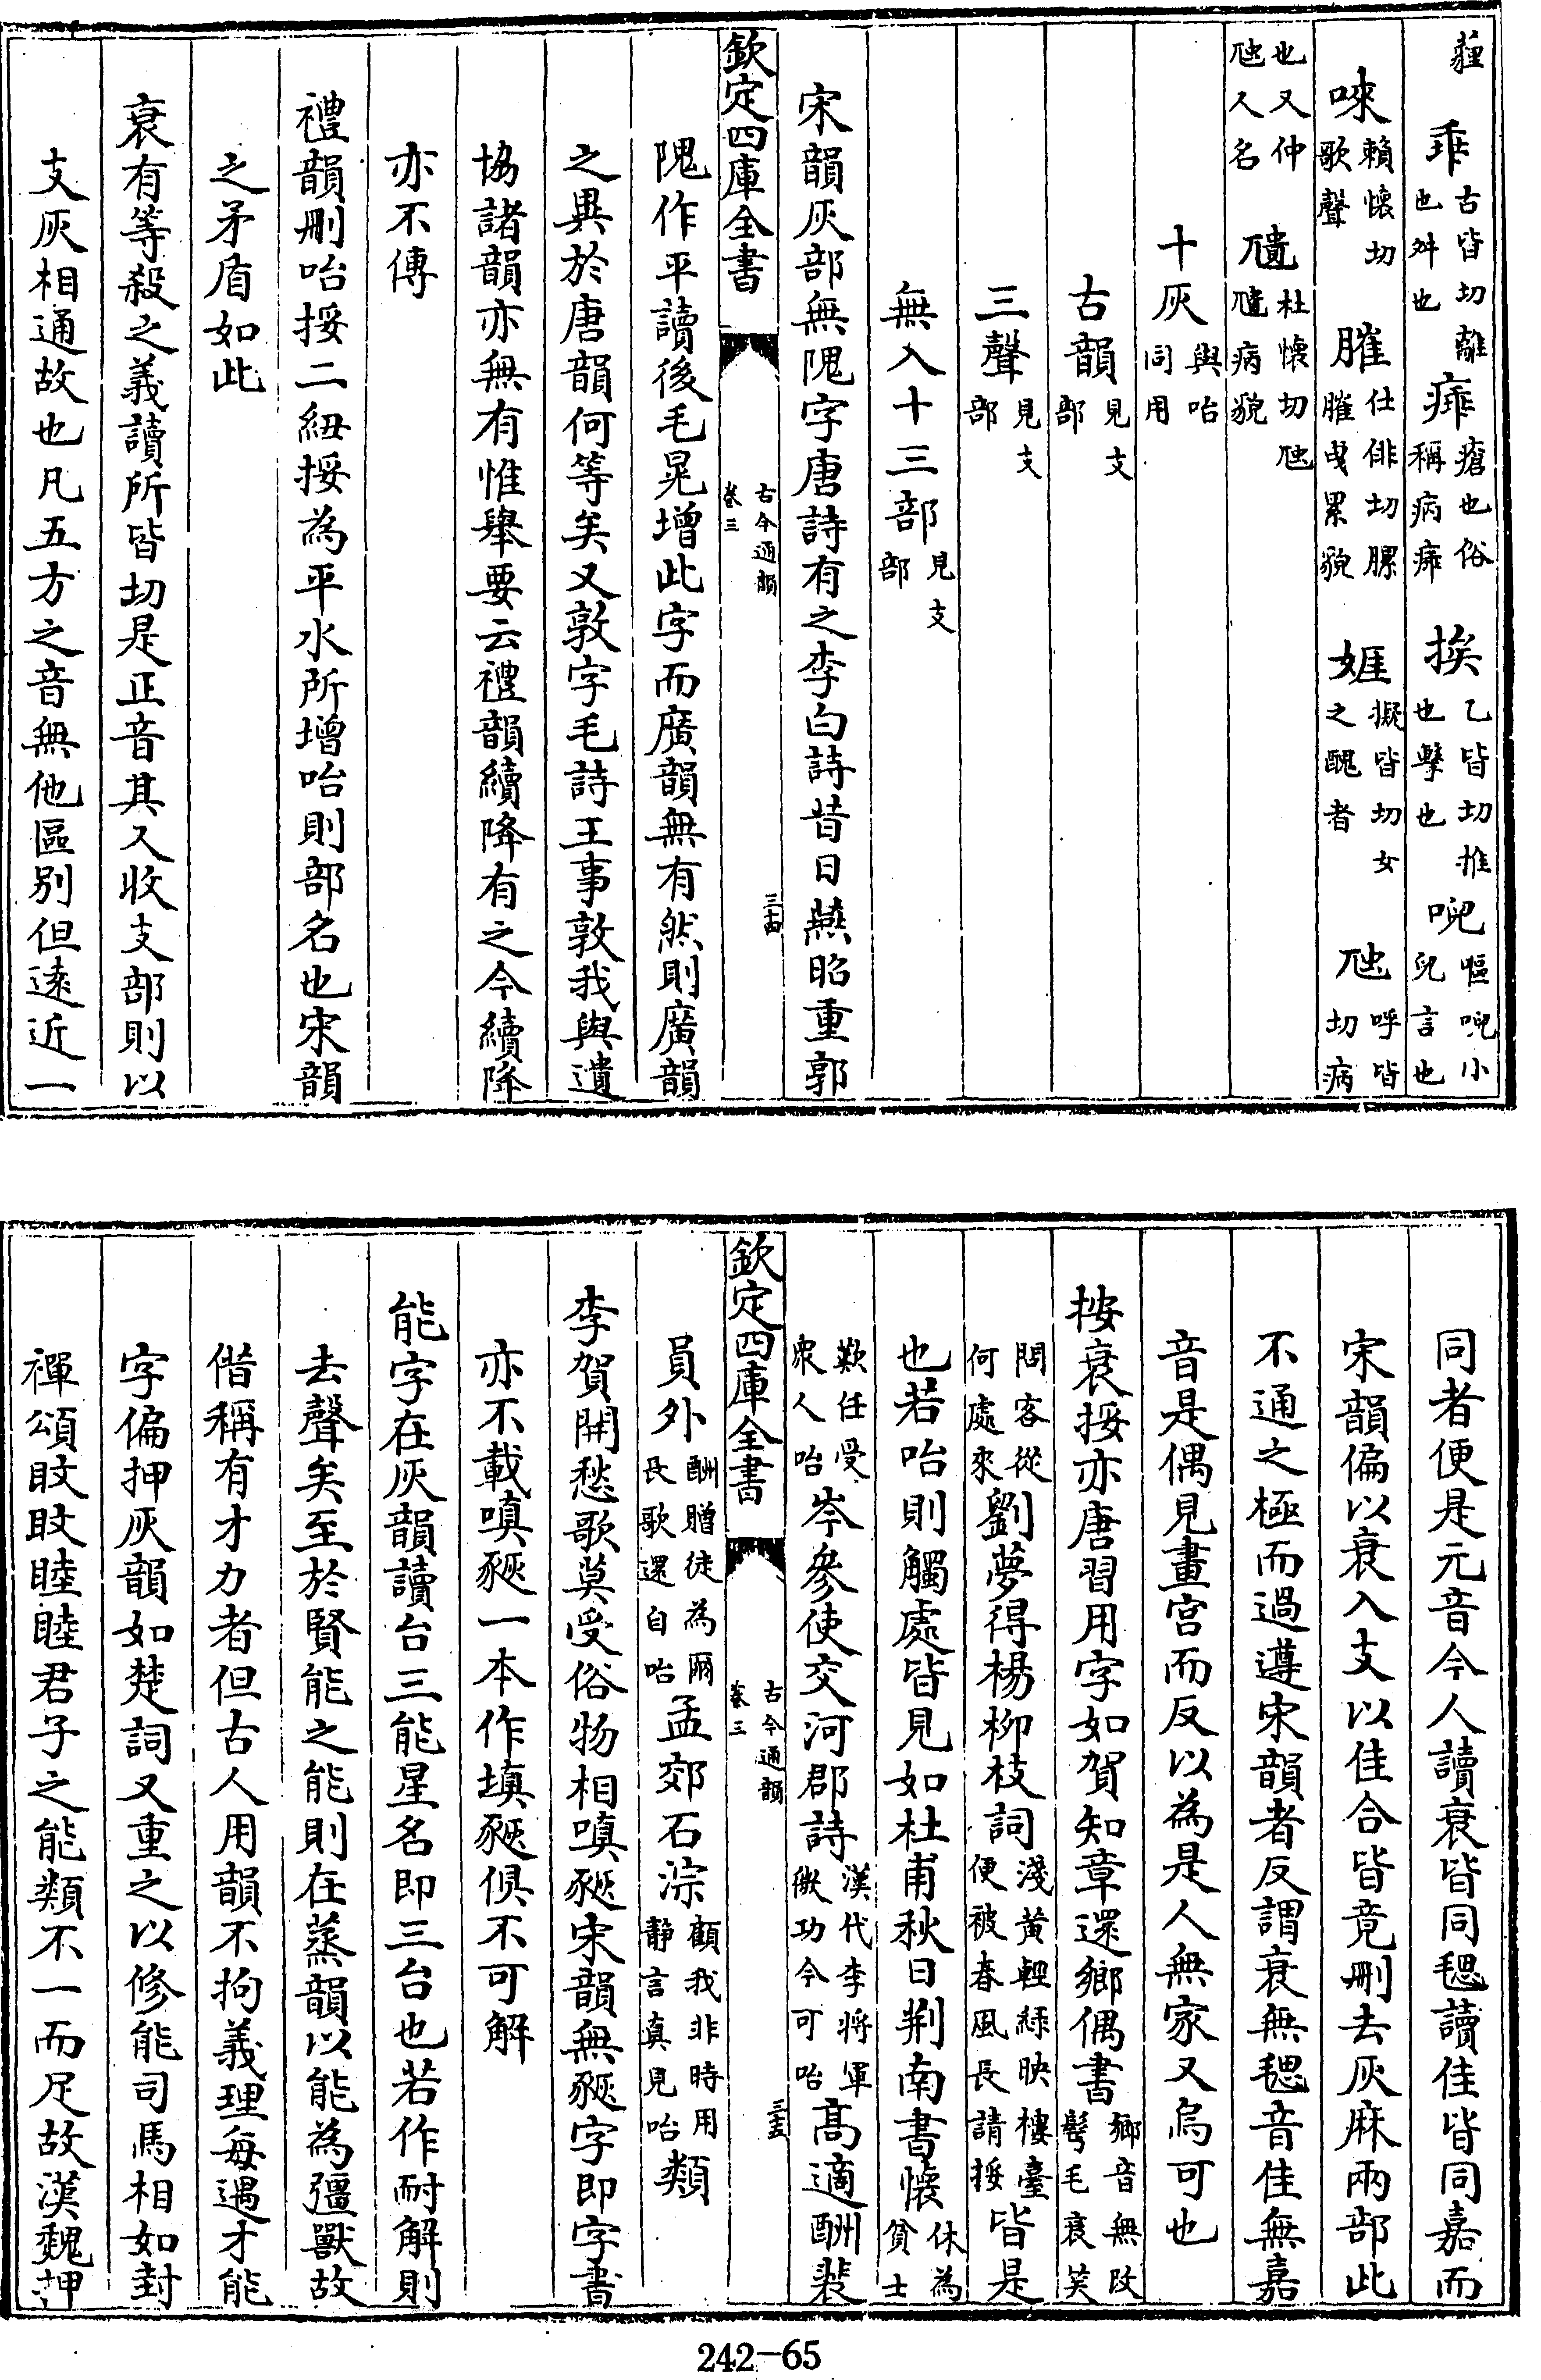 薶 乖古皆切離也舛也 㾹瘡也俗稱病㾹 挨乙皆切推也擊也 唲嘔唲小兒言也
唻賴懷切歌聲 膗仕俳切腂膗曵累貌 娾擬皆切女之醜者 虺呼皆切病
也又仲虺人名 尵杜懷切虺尵病貌
十灰與咍同用
古韻見支部
三聲見支部
無入十三部見支部
宋韻灰部無隗字唐詩有之李白詩昔日燕昭重郭
欽定四庫全書 古今通韻 卷三 三四
隗作平讀後毛晃增此字而廣韻無有然則廣韻
之異於唐韻何等矣又敦字毛詩王事敦我與遺
協諸韻亦無有惟舉要云禮韻續降有之今續降
亦不傳
禮韻刪咍挼二紐挼為平水所增咍則部名也宋韻
之矛盾如此
衰有等殺之義讀所皆切是正音其又收支部則以
支灰相通故也凡五方之音無他區別但遠近一
同者便是元音今人讀衰皆同毸讀佳皆同嘉而
宋韻偏以衰入支以佳合皆竟刪去灰麻兩部此
不通之極而過遵宋韻者反謂衰無毸音佳無嘉
音是偶見畫宫而反以為是人無家又烏可也
按衰挼亦唐習用字如賀知章還鄉偶書鄉音無改鬢毛衰笑
問客從何處來劉夢得楊柳枝詞淺黃輕綠映樓臺便被春風長請挼皆是
也若咍則觸處皆見如杜甫秋日荆南書懷休為貧士
歎任受衆人咍岑參使交河郡詩漢代李將軍微功今可咍高適酬裴
欽定四庫全書 古今通韻 卷三 三五
員外酬贈徒為爾長歌還自咍孟郊石淙顧我非時用静言真見咍類
李賀開愁歌莫受俗物相嗔豗宋韻無豗字即字書
亦不載嗔豗一本作塡豗俱不可解
能字在灰韻讀台三能星名即三台也若作耐解則
去聲矣至於賢能之能則在蒸韻以能為彊獸故
借稱有才力者但古人用韻不拘義理每遇才能
字偏押灰韻如楚詞又重之以修能司馬相如封
禪頌旼旼睦睦君子之能類不一而足故漢魏押
242-65